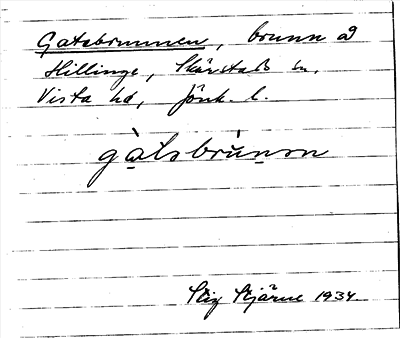 Gatsbrunnen, brunn å
Hillinge, Skärstads sn,
Vista hd, Jönk. l.
gàtsbrùnən
Stig Stjärne 1934.